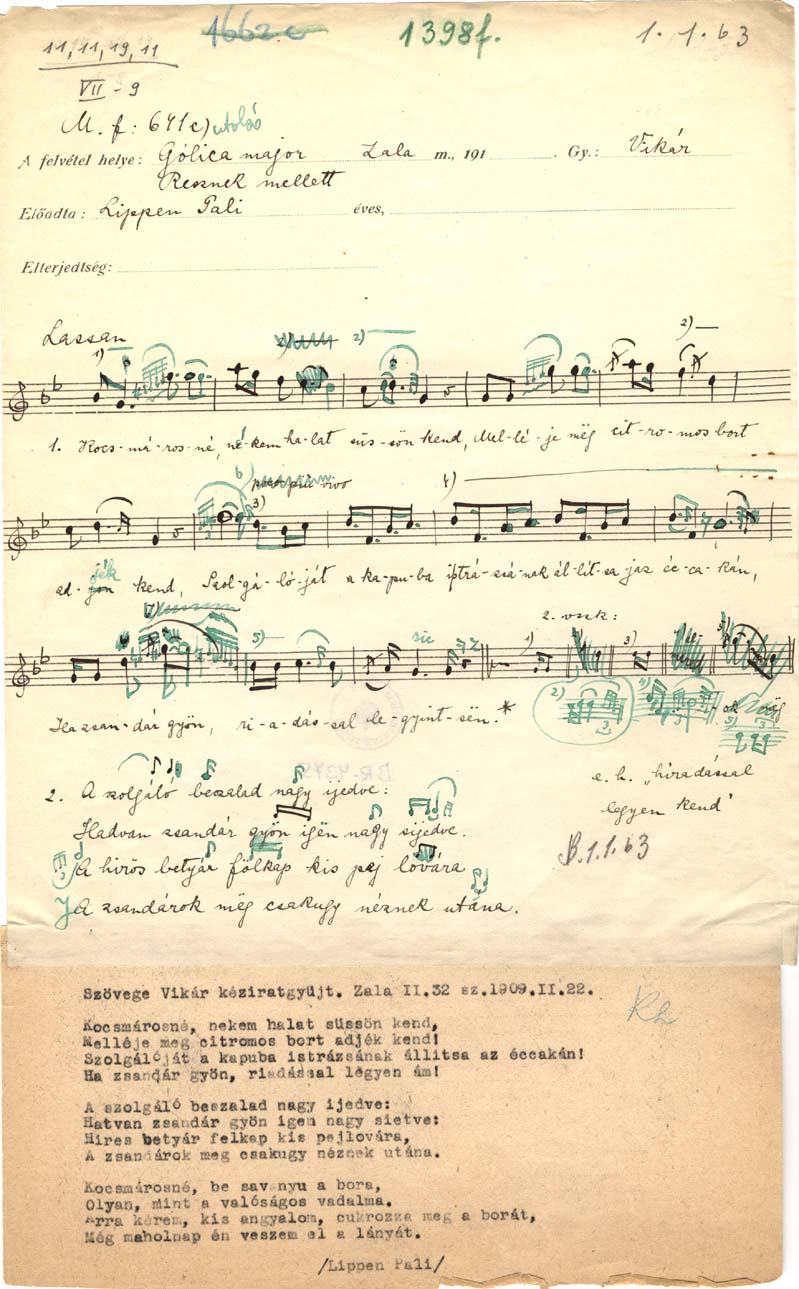 11, 11, 19, 11
1662c
1398f.
1. 1. 63
VII - 9
M. f: 641c) utolsó
A felvétel helye: Gólica major Zala m., 191 . Gy.: Vikár
Resznek mellett
Előadta: Lippen Pali éves,
Elterjedtség:
Lassan
1) 2) 2)
1. Kocs-má-ros-né, né-kem ha-lat süs-sön kend, Mel-lé-je mëg cit-ro-mos bort
6) più vivo 3) 4)
ad-ják kend, Szol-gá-ló-ját a ka-pu-ba iptrá-zsá-nak ál-lit-sa jaz éc-ca-kán,
7) 5) sic 2. vszk: 1) 3) 5)
Ha zsan-dár gyön, ri-a-dás-sal le-gyint-sën.*
2) 4) 5)
2. A szolgáló beszalad nagy ijedve:
e. h. „hiradással
Hadvan zsandár gyön igën nagy sijedve.
legyen kend"
A hirös betyár fölkap kis pej lóvára
B. 1. 1. 63
A zsandárok mëg csakugy néznek utána.
Szövege Vikár kéziratgyüjt. Zala II.32 sz.1909.II.22.
Kocsmárosné, nekem halat süssön kend,
Melléje meg citromos bort adjék kend!
Szolgálóját a kapuba istrázsának állitsa az éccakán!
Ha zsandár gyön, riadással légyen ám!
A szolgáló beszalad nagy ijedve:
Hatvan zsandár gyön igen nagy sietve:
Hires betyár felkap kis pejlovára,
A zsandárok meg csakugy néznek utána.
Kocsmárosné, be savanyu a bora,
Olyan, mint a valóságos vadalma.
Arra kérem, kis angyalom, cukrozza meg a borát,
Még maholnap én veszem el a lányát.
/Lippen Pali/